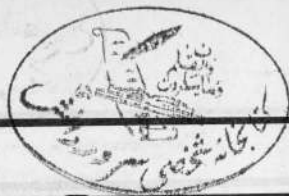 ن
والقلم
وما يسطرون
کتابخانه شخصی سرور